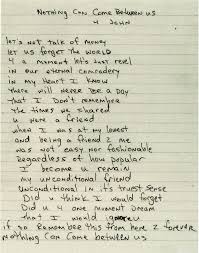 Nothing Can Come Between us
4 John
let's not talk of money
let us forget the world
4 a moment let's just revel
in our eternal comradery
in my heart I know
there will never be a day
that I don't remember
the times we shared
u were a friend
when I was at my lowest
and being a friend 2 me
was not easy nor fashionable
Regardless of how popular
I become u remain
my unconditional friend
unconditional in its truest sense
Did u think I would forget
Did u 4 one moment dream
that I would ignore u
if so Remember this from here 2 forever
nothing can come between us